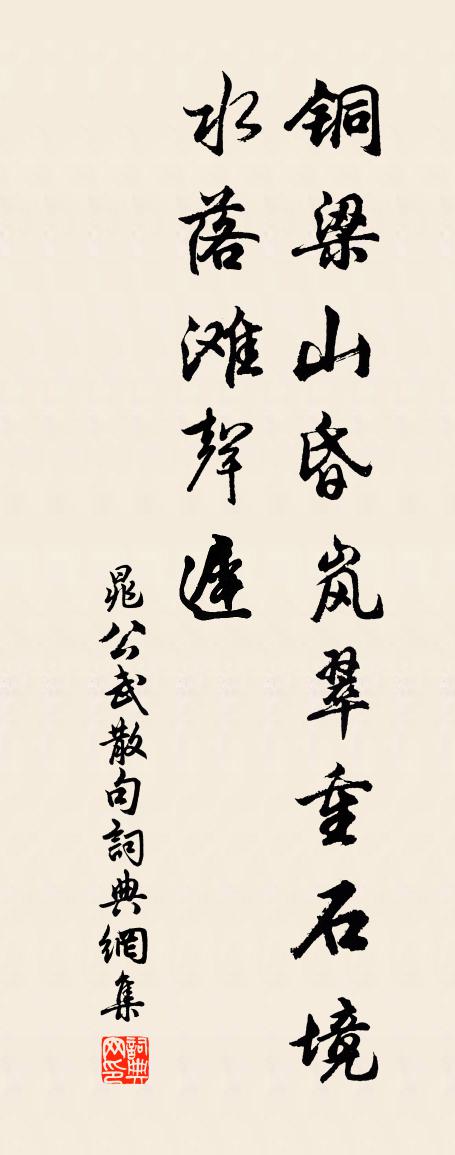 铜梁山昏岚翠重石境
水落滩聲遲
晁公武散句詞典網集
詞典网印